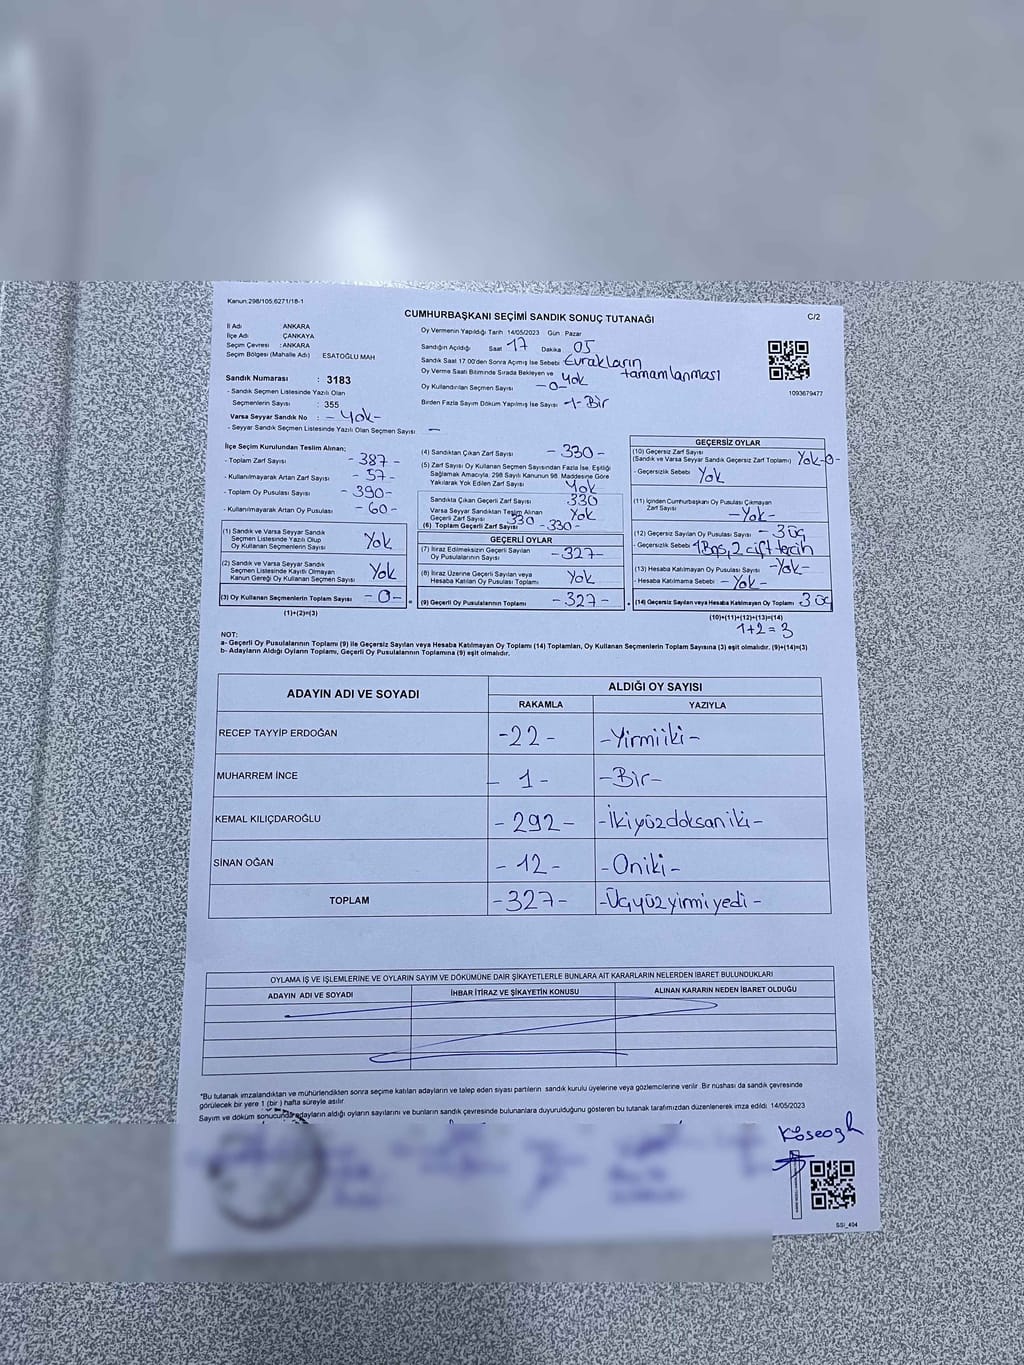 Kanun:298/105.6271/18-1
CUMHURBAŞKANI SEÇİMİ SANDIK SONUÇ TUTANAĞI
C/2
İl Adı ANKARA
İlçe Adı ÇANKAYA
Seçim Çevresi : ANKARA
Seçim Bölgesi (Mahalle Adı) ESATOĞLU MAH
Sandık Numarası : 3183
- Sandık Seçmen Listesinde Yazılı Olan
Seçmenlerin Sayısı : 355
Varsa Seyyar Sandık No : - Yok -
- Seyyar Sandık Seçmen Listesinde Yazılı Olan Seçmen Sayısı : -
Oy Vermenin Yapıldığı Tarih 14/05/2023 Gün : Pazar
Sandığın Açıldığı Saat 17 Dakika 05
Sandık Saat 17.00'den Sonra Açılmış İse Sebebi Evrakların tamamlanması
Oy Verme Saati Bitiminde Sırada Bekleyen ve Yok
Oy Kullandırılan Seçmen Sayısı -0-
Birden Fazla Sayım Döküm Yapılmış İse Sayısı -1- Bir
1093679477
İlçe Seçim Kurulundan Teslim Alınan;
- Toplam Zarf Sayısı - 387 -
- Kullanılmayarak Artan Zarf Sayısı - 57 -
- Toplam Oy Pusulası Sayısı - 390 -
- Kullanılmayarak Artan Oy Pusulası - 60 -
(1) Sandık ve Varsa Seyyar Sandık
Seçmen Listesinde Yazılı Olup
Oy Kullanan Seçmenlerin Sayısı Yok
(2) Sandık ve Varsa Seyyar Sandık
Seçmen Listesinde Kayıtlı Olmayan
Kanun Gereği Oy Kullanan Seçmen Sayısı Yok
(3) Oy Kullanan Seçmenlerin Toplam Sayısı - 0 -
(1)+(2)=(3)
(4) Sandıktan Çıkan Zarf Sayısı - 330 -
(5) Zarf Sayısı Oy Kullanan Seçmen Sayısından Fazla İse, Eşitliği
Sağlamak Amacıyla, 298 Sayılı Kanunun 98. Maddesine Göre
Yakılarak Yok Edilen Zarf Sayısı Yok
Sandıkta Çıkan Geçerli Zarf Sayısı 330
Varsa Seyyar Sandıktan Teslim Alınan
Geçerli Zarf Sayısı 330 Yok
(6) Toplam Geçerli Zarf Sayısı - 330 -
GEÇERLİ OYLAR
(7) İtiraz Edilmeksizin Geçerli Sayılan
Oy Pusulalarının Sayısı - 327 -
(8) İtiraz Üzerine Geçerli Sayılan veya
Hesaba Katılan Oy Pusulası Toplamı Yok
(9) Geçerli Oy Pusulalarının Toplamı - 327 -
GEÇERSİZ OYLAR
(10) Geçersiz Zarf Sayısı
(Sandık ve Varsa Seyyar Sandık Geçersiz Zarf Toplamı) Yok -0-
- Geçersizlik Sebebi Yok
(11) İçinden Cumhurbaşkanı Oy Pusulası Çıkmayan
Zarf Sayısı - Yok -
(12) Geçersiz Sayılan Oy Pusulası Sayısı - 3 üç
- Geçersizlik Sebebi 1 Boş, 2 çift tercih
(13) Hesaba Katılmayan Oy Pusulası Sayısı - Yok -
- Hesaba Katılmama Sebebi - Yok -
(14) Geçersiz Sayılan veya Hesaba Katılmayan Oy Toplamı 3 üç
(10)+(11)+(12)+(13)=(14)
1+2=3
NOT:
a- Geçerli Oy Pusulalarının Toplamı (9) ile Geçersiz Sayılan veya Hesaba Katılmayan Oy Toplamı (14) Toplamları, Oy Kullanan Seçmenlerin Toplam Sayısına (3) eşit olmalıdır. (9)+(14)=(3)
b- Adayların Aldığı Oyların Toplamı, Geçerli Oy Pusulalarının Toplamına (9) eşit olmalıdır.
ADAYIN ADI VE SOYADI ALDIĞI OY SAYISI
RAKAMLA YAZIYLA
RECEP TAYYİP ERDOĞAN -22- -Yirmiiki-
MUHARREM İNCE - 1 - -Bir-
KEMAL KILIÇDAROĞLU - 292 - -İkiyüzdoksaniki-
SİNAN OĞAN - 12 - -Oniki-
TOPLAM -327- -Üçyüzyirmiyedi-
OYLAMA İŞ VE İŞLEMLERİNE VE OYLARIN SAYIM VE DÖKÜMÜNE DAİR ŞİKAYETLERLE BUNLARA AİT KARARLARIN NELERDEN İBARET BULUNDUKLARI
ADAYIN ADI VE SOYADI İHBAR İTİRAZ VE ŞİKAYETİN KONUSU ALINAN KARARIN NEDEN İBARET OLDUĞU
*Bu tutanak imzalandıktan ve mühürlendikten sonra seçime katılan adayların ve talep eden siyasi partilerin sandık kurulu üyelerine veya gözlemcilerine verilir. Bir nüshası da sandık çevresinde
görülecek bir yere 1 (bir) hafta süreyle asılır.
Sayım ve döküm sonucunda adayların aldığı oyların sayılarını ve bunların sandık çevresinde bulunanlara duyurulduğunu gösteren bu tutanak tarafımızdan düzenlenerek imza edildi. 14/05/2023
SSİ_404